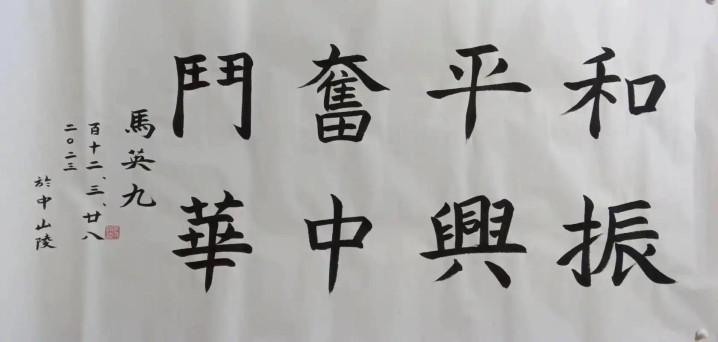 和平奮鬥
振興中華
馬英九
百十二、三、廿八
二〇二三
於中山陵